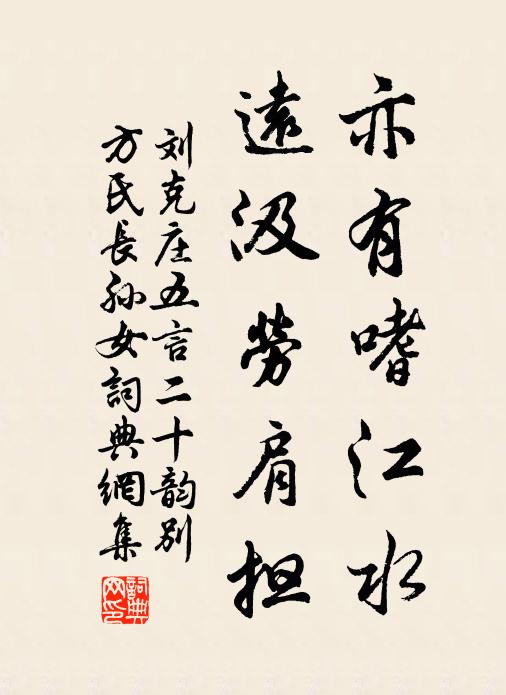 亦有嗜江水
遠汲勞肩担
刘克庄五言二十韵别
方氏長孙女詞典網集
詞典网印